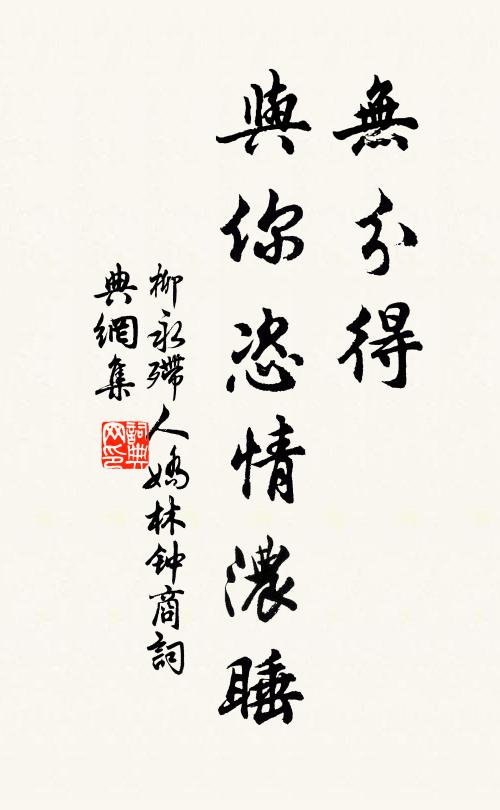 無分得
與你恣情濃睡
柳永殢人嬌林钟商詞
典網集
詞典
网印